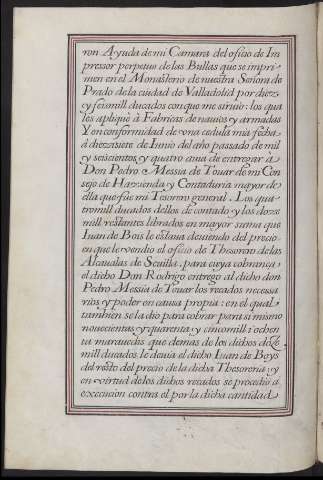 ron Ayuda de mi Camara del oficio de Im
pressor perpetuo de las Bullas que se impri
men en el Monasterio de nuestra Señora de
Prado de la ciudad de Valladolid por diez
y seis mill ducados con que me siruio: los qua
les apliquè à Fabricas de nauios y armadas
Y en conformidad de vna cedula mia fecha
à diez i siete de Iunio del año passado de mil
y seiscientos y quatro auia de entregar a
Don Pedro Messia de Touar de mi Con
sejo de Hazienda y Contaduria mayor de
ella que fúe mi Tesorero general. Los qua
tro mill ducados dellos de contado y los doze
mill restantes librados en mayor suma que
Iuan de Bois le estaua deuiendo del precio
en que le vendio el oficio de Thesorero de las
Alcaualas de Seuilla, para cuya cobranca
el dicho Don Rodrigo entrego al dicho don
Pedro Messia de Touar los recados necessa
rios y poder en causa propia: en el qual
tambien se la dio para cobrar para si mismo
nouecientas y quarenta y cinco mill i ochen
ta marauedis que demas de los dichos doze
mill ducados le deuia el dicho Iuan de Boys
del resto del precio de la dicha Thesoreria: y
en virtud de los dichos recados se procedio a
execucion contra el por la dicha cantidad